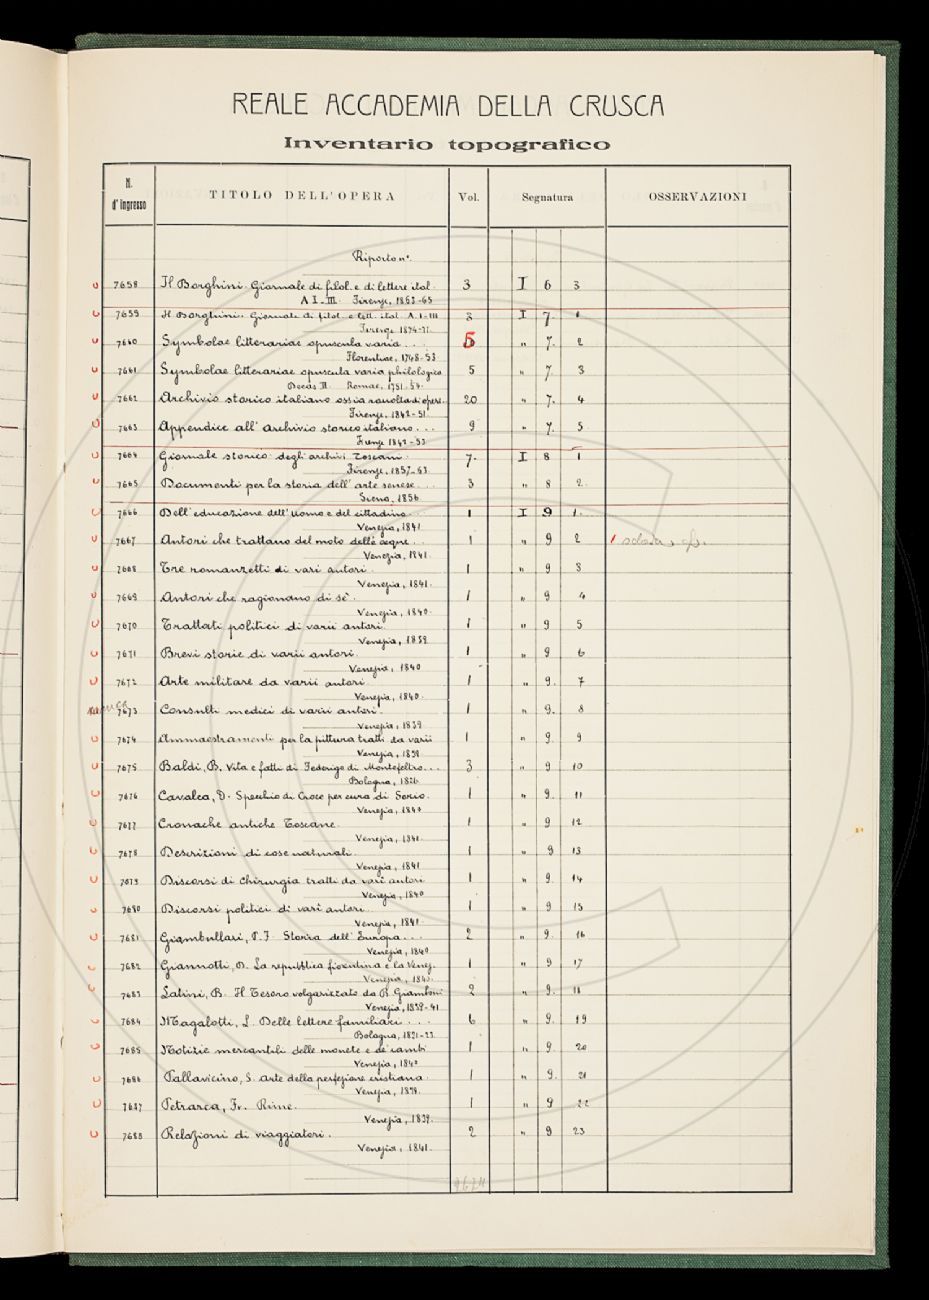 REALE ACCADEMIA DELLA CRUSCA
Inventario topografico
N. d'ingresso TITOLO DELL'OPERA Vol. Segnatura OSSERVAZIONI
Riporto n°.
7658 Il Borghini. Giornale di filol. e di lettere ital. 3 I 6 3
A I-III. Firenze, 1863-65
7659 Il Borghini. Giornale di filol. e lett. ital. A. I-III 3 I 7. 1
Firenze 1874-77
7660 Symbolae litterariae opuscula varia . . . 5 " 7. 2
Florentiae, 1748-53
7661 Symbolae litterariae opuscula varia philologica 5 " 7. 3
Decas II. Romae, 1751-54.
7662 Archivio storico italiano ossia raccolta di opere. 20 " 7. 4
Firenze, 1842-51.
7663 Appendice all' archivio storico italiano . . . 9 " 7. 5
Firenze 1842-53
7664 Giornale storico degli archivi toscani. 7. I 8 1
Firenze, 1857-63
7665 Documenti per la storia dell' arte senese . . . 3 " 8 2.
Siena, 1856
7666 Dell' educazione dell' uomo e del cittadino. 1 I 9 1.
Venezia, 1841
7667 Autori che trattano del moto delle acque . . 1 " 9 2
Venezia, 1841.
7668 Tre romanzetti di vari autori. 1 " 9 3
Venezia, 1841.
7669 Autori che ragionano di sè. 1 " 9 4
Venezia, 1840.
7670 Trattati politici di varii autori. 1 " 9 5
Venezia, 1839.
7671 Brevi storie di varii autori. 1 " 9 6
Venezia, 1840
7672 Arte militare da varii autori. 1 " 9. 7
Venezia, 1840.
7673 Consulti medici di varii autori. 1 " 9. 8
Venezia, 1839
7674 Ammaestramenti per la pittura tratti da varii 1 " 9. 9
Venezia, 1839.
7675 Baldi, B. Vita e fatti di Federigo di Montefeltro . . . 3 " 9 10
Bologna, 1826
7676 Cavalca, D. Specchio di Croce per cura di Sorio. 1 " 9. 11
Venezia, 1840
7677 Cronache antiche Toscane. 1 " 9 12
Venezia, 1841.
7678 Descrizioni di cose naturali. 1 " 9 13
Venezia, 1841
7679 Discorsi di chirurgia tratti da vari autori 1 " 9. 14
Venezia, 1840
7680 Discorsi politici di vari autori. 1 " 9 15
Venezia, 1841.
7681 Giambullari, P. F. Storia dell' Europa . . . 2 " 9. 16
Venezia, 1840
7682 Giannotti, D. La repubblica fiorentina e la Venez. 1 " 9 17
Venezia, 1840.
7683 Latini, B. Il Tesoro volgarizzato da B. Giamboni 2 " 9. 18
Venezia, 1839-41
7684 Magalotti, L. Delle lettere familiari . . . 6 " 9. 19
Bologna, 1821-23.
7685 Notizie mercantili delle monete e de' cambi 1 " 9. 20
Venezia, 1840
7686 Pallavicino, S. Arte della perfezione cristiana. 1 " 9. 21
Venezia, 1839.
7687 Petrarca, Fr. Rime. 1 " 9 22
Venezia, 1839.
7688 Relazioni di viaggiatori. 2 " 9 23
Venezia, 1841.